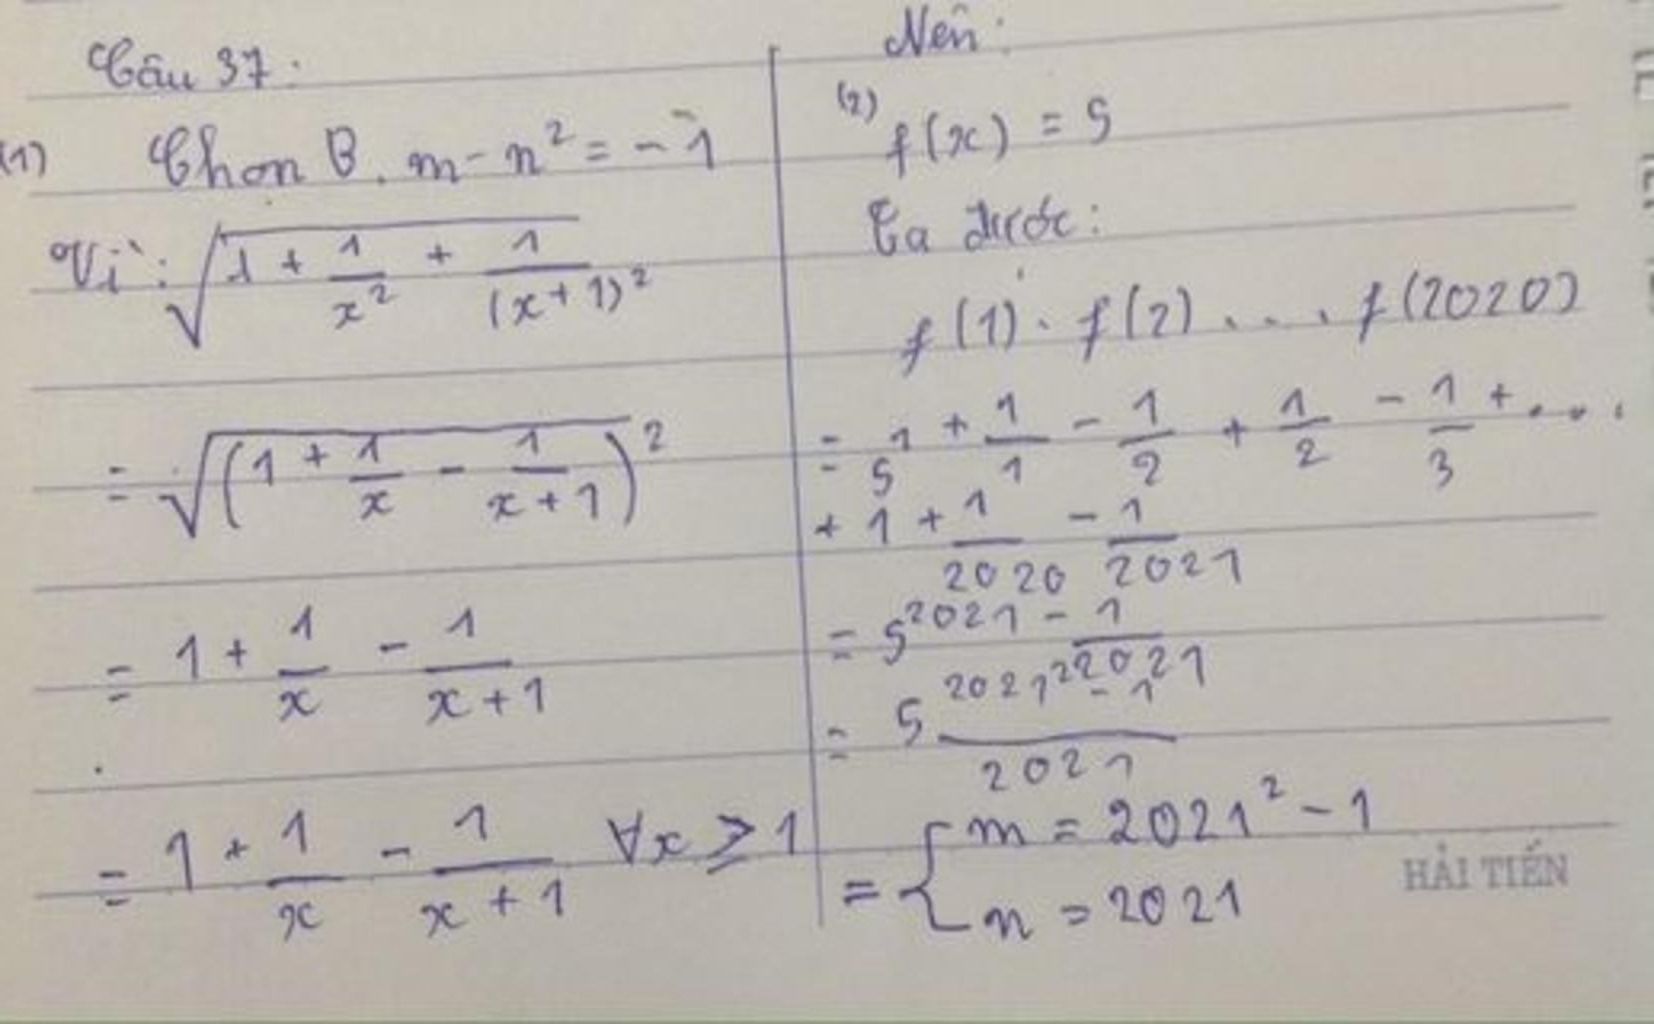 Câu 37:
(1) Chon B. m - n² = -1
Vì: √(1 + 1/x² + 1/(x+1)²)
= √(1 + 1/x - 1/(x+1))²
= 1 + 1/x - 1/(x+1)
= 1 + 1/x - 1/(x+1) ∀x ≥ 1
Nên:
(2) f(x) = 5
Ta được:
f(1). f(2) .... f(2020)
= 5^1 + 1/1 - 1/2 + 1/2 - 1/3 + ....
+ 1 + 1/2020 - 1/2021
= 5^2021 - 1/2021
= 5^(2021² - 1)/2021
= { m = 2021² - 1
n = 2021
HẢI TIẾN